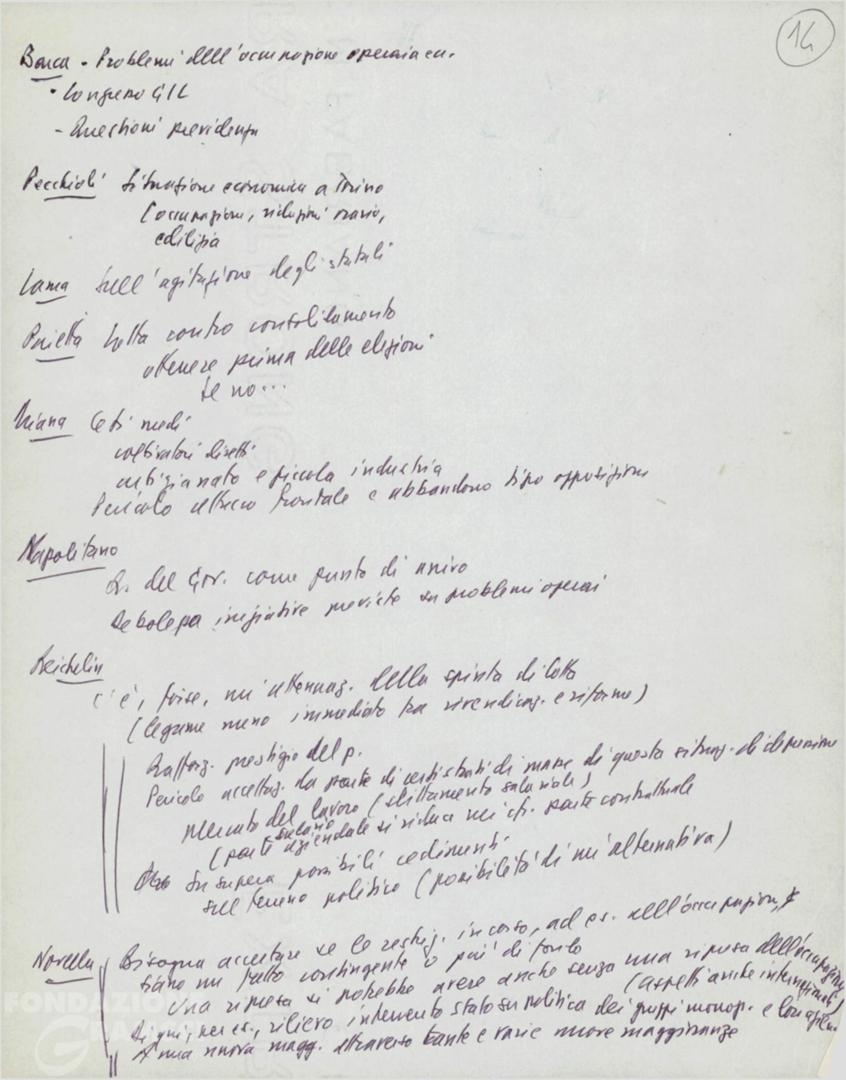 14
Barca - Problemi dell'occupazione operaia ecc.
- Congresso CGIL
- Questioni previdenza
Pecchioli Situazione economica a Torino
(occupazione, riduzioni orario,
edilizia
Lama Sull'agitazione degli statali
Pajetta Lotta contro conglobamento
ottenere prima delle elezioni
se no...
Ceti medi
coltivatori diretti
artigianato e piccola industria
Pericolo attacco frontale e abbandono tipo opposizione
Napolitano
D. del Gov. come punto di arrivo
Debolezza iniziative previste su problemi operai
Reichlin
C'è, forse, un'attenuaz. della spinta di lotta
(legame meno immediato tra rivendicaz. e riforme)
Rafforz. prestigio del p.
Pericolo accettaz. da parte di certi strati di massa di questa situaz. di depressione
mercato del lavoro (slittamento salariale)
(parte aziendale si riduca nei cfr. parte contrattuale
salario
Su possibili cedimenti
sul terreno politico (possibilità di un'alternativa)
Novella Bisogna accertare se le restriz. in corso, ad es. nell'occupazione,
siano un fatto contingente o più di fondo
Una ripresa si potrebbe avere anche senza una ripresa dell'occupazione
(aspetti anche internazionali)
Di qui, per es., rilievo intervento stato su politica dei gruppi monop. e
A una nuova magg. attraverso tante e varie nuove maggioranze
FONDAZIONE
Gramsci